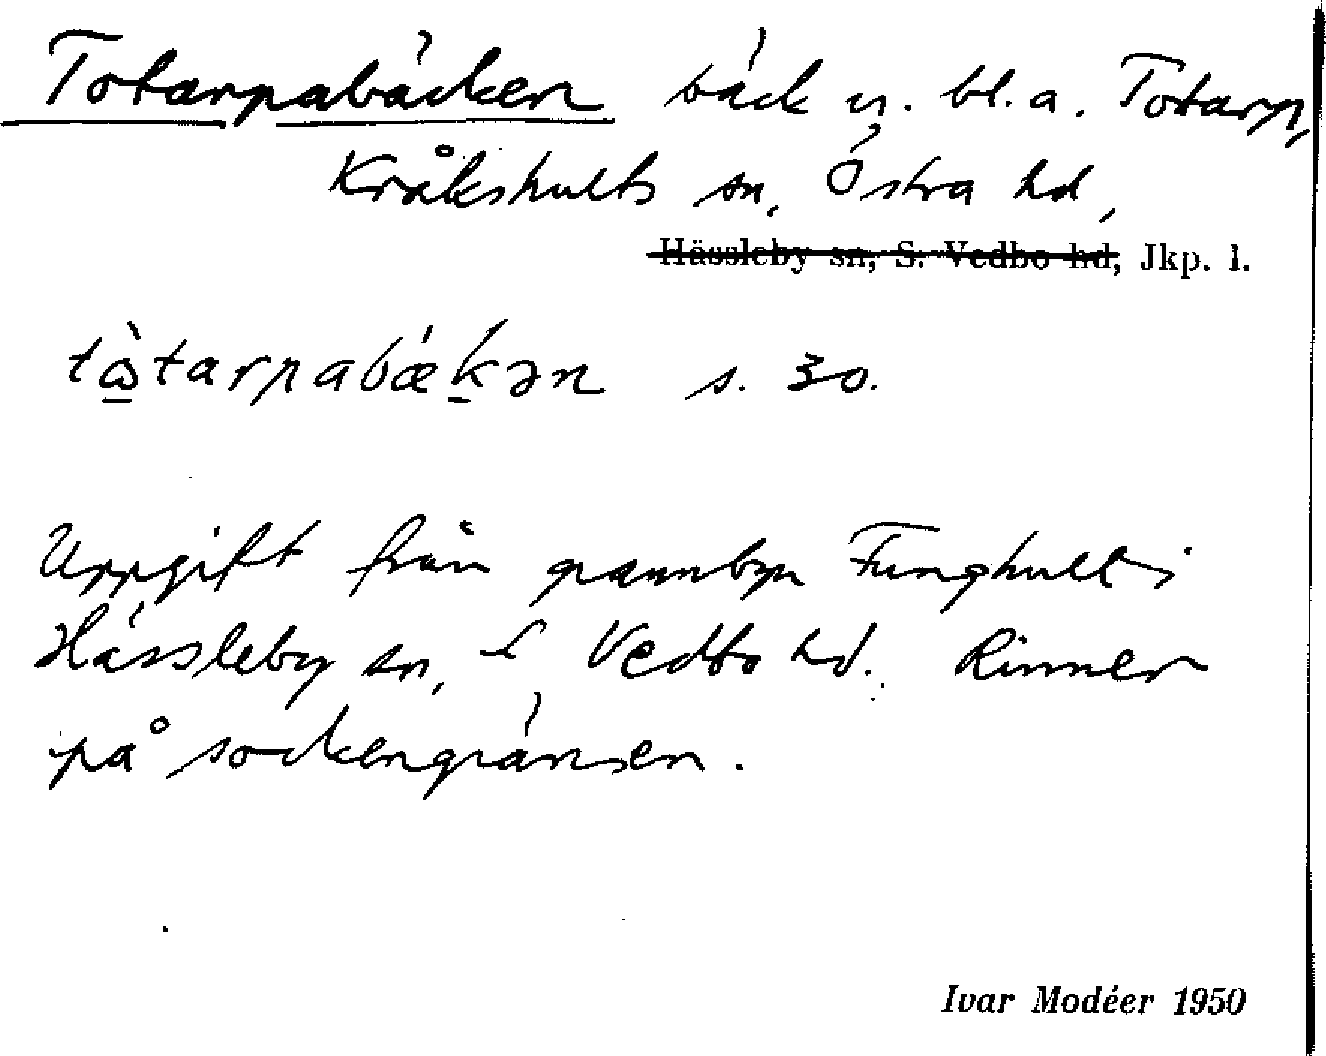 Totarpabäcken bäck y. bl.a. Totarp,
Kråkshults sn, Östra hd,
Hässleby sn, S. Vedbo hd, Jkp. l.
tὼtarpabækən s. 30.
Uppgift från grannbyn Funghult i
Hässleby sn, S Vedbo hd. Rinner
på sockengränsen.
Ivar Modéer 1950